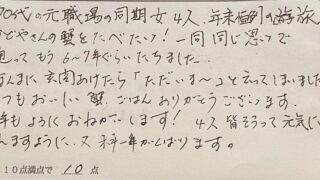 70代の元職場の同期女4人、年末恒例の遊旅
やさんの蟹をたべたい!一同同じ思いで
通ってもう6~7年ぐらいたちました。
さんま玄関あけたら「ただいま~」と云ってしまいました
いつもおいしい蟹、ごはんありがとうございます。
年もよろしくおねがいします!4人皆そろって元気に
んますように、又1年がんばります。
10点満点で 10 点